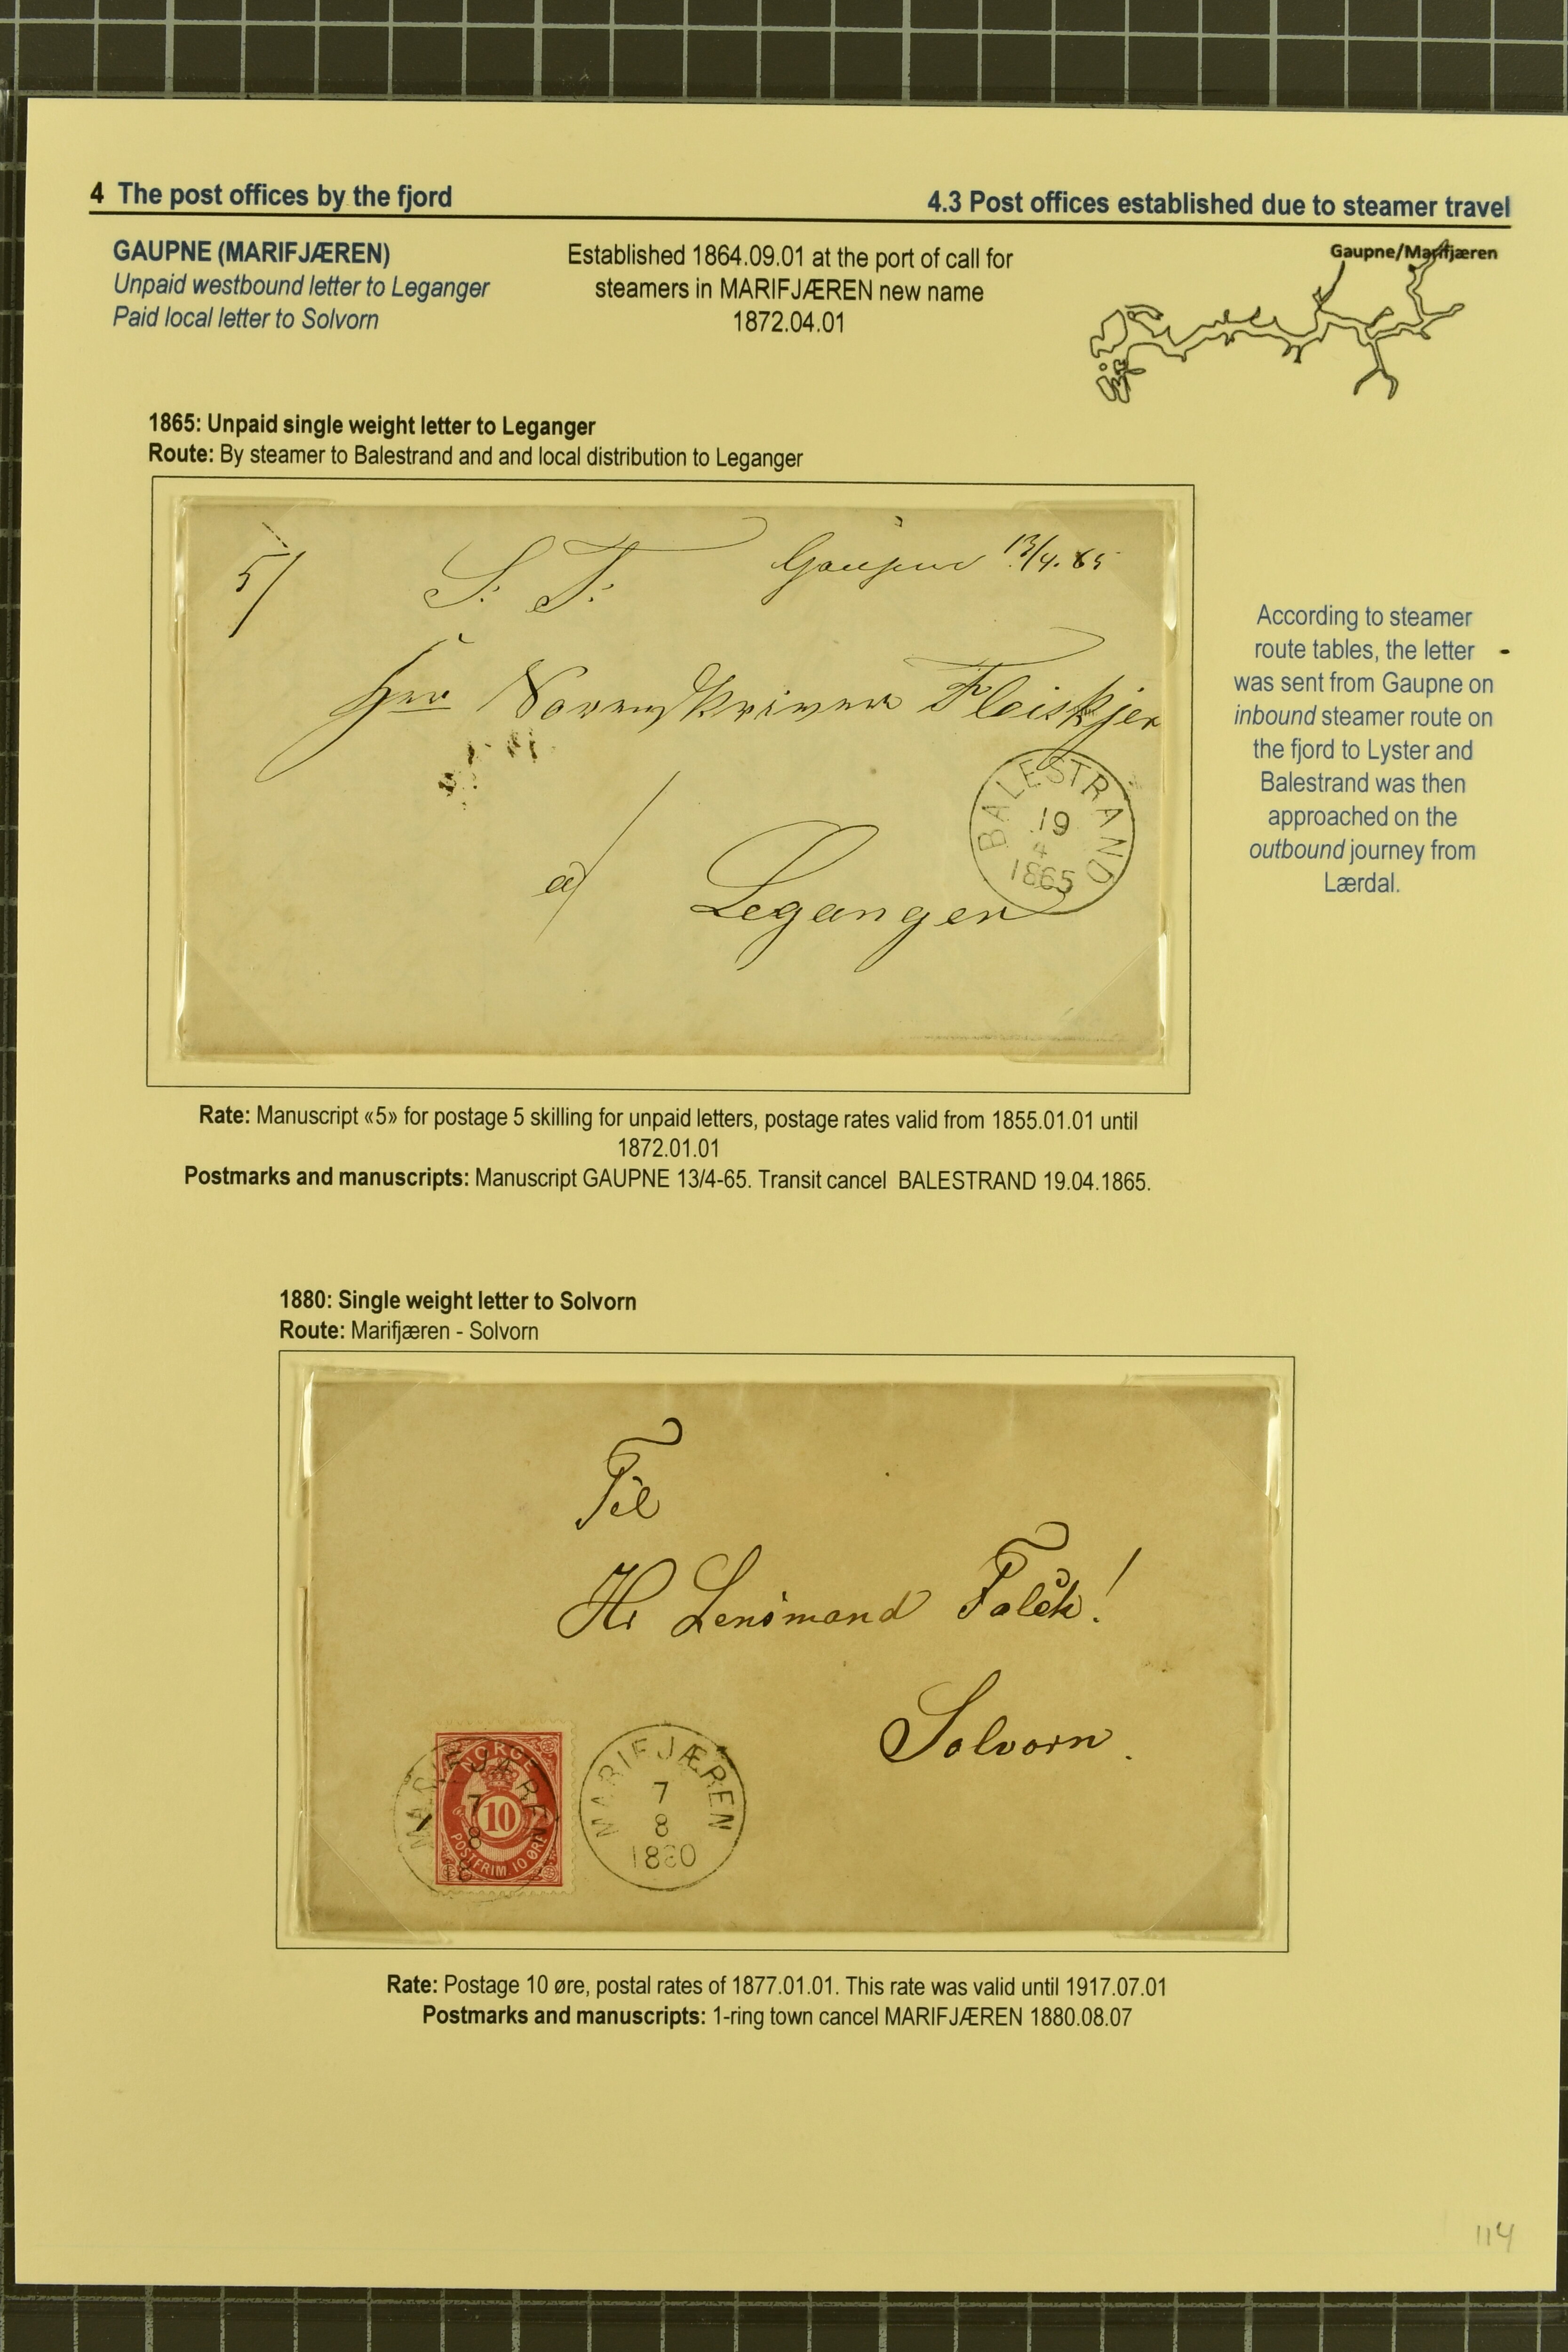 4 The post offices by the fjord
4.3 Post offices established due to steamer travel
GAUPNE (MARIFJÆREN)
Unpaid westbound letter to Leganger
Paid local letter to Solvorn
Established 1864.09.01 at the port of call for
steamers in MARIFJÆREN new name
1872.04.01
Gaupne/Marifjæren
1865: Unpaid single weight letter to Leganger
Route: By steamer to Balestrand and and local distribution to Leganger
5/
S: T:
Gaupne 13/4. 65
Herr Sorenskriver Fleischer
a/ Leganger
BALESTRAND
19
4
1865
According to steamer
route tables, the letter
was sent from Gaupne on
inbound steamer route on
the fjord to Lyster and
Balestrand was then
approached on the
outbound journey from
Lærdal.
Rate: Manuscript «5» for postage 5 skilling for unpaid letters, postage rates valid from 1855.01.01 until
1872.01.01
Postmarks and manuscripts: Manuscript GAUPNE 13/4-65. Transit cancel BALESTRAND 19.04.1865.
1880: Single weight letter to Solvorn
Route: Marifjæren - Solvorn
Til
Hr Lensmand Falck!
Solvorn.
NORGE
10
POSTFRIM. 10 ØRE
MARIFJÆREN
7
8
18
MARIFJÆREN
7
8
1880
Rate: Postage 10 øre, postal rates of 1877.01.01. This rate was valid until 1917.07.01
Postmarks and manuscripts: 1-ring town cancel MARIFJÆREN 1880.08.07
114